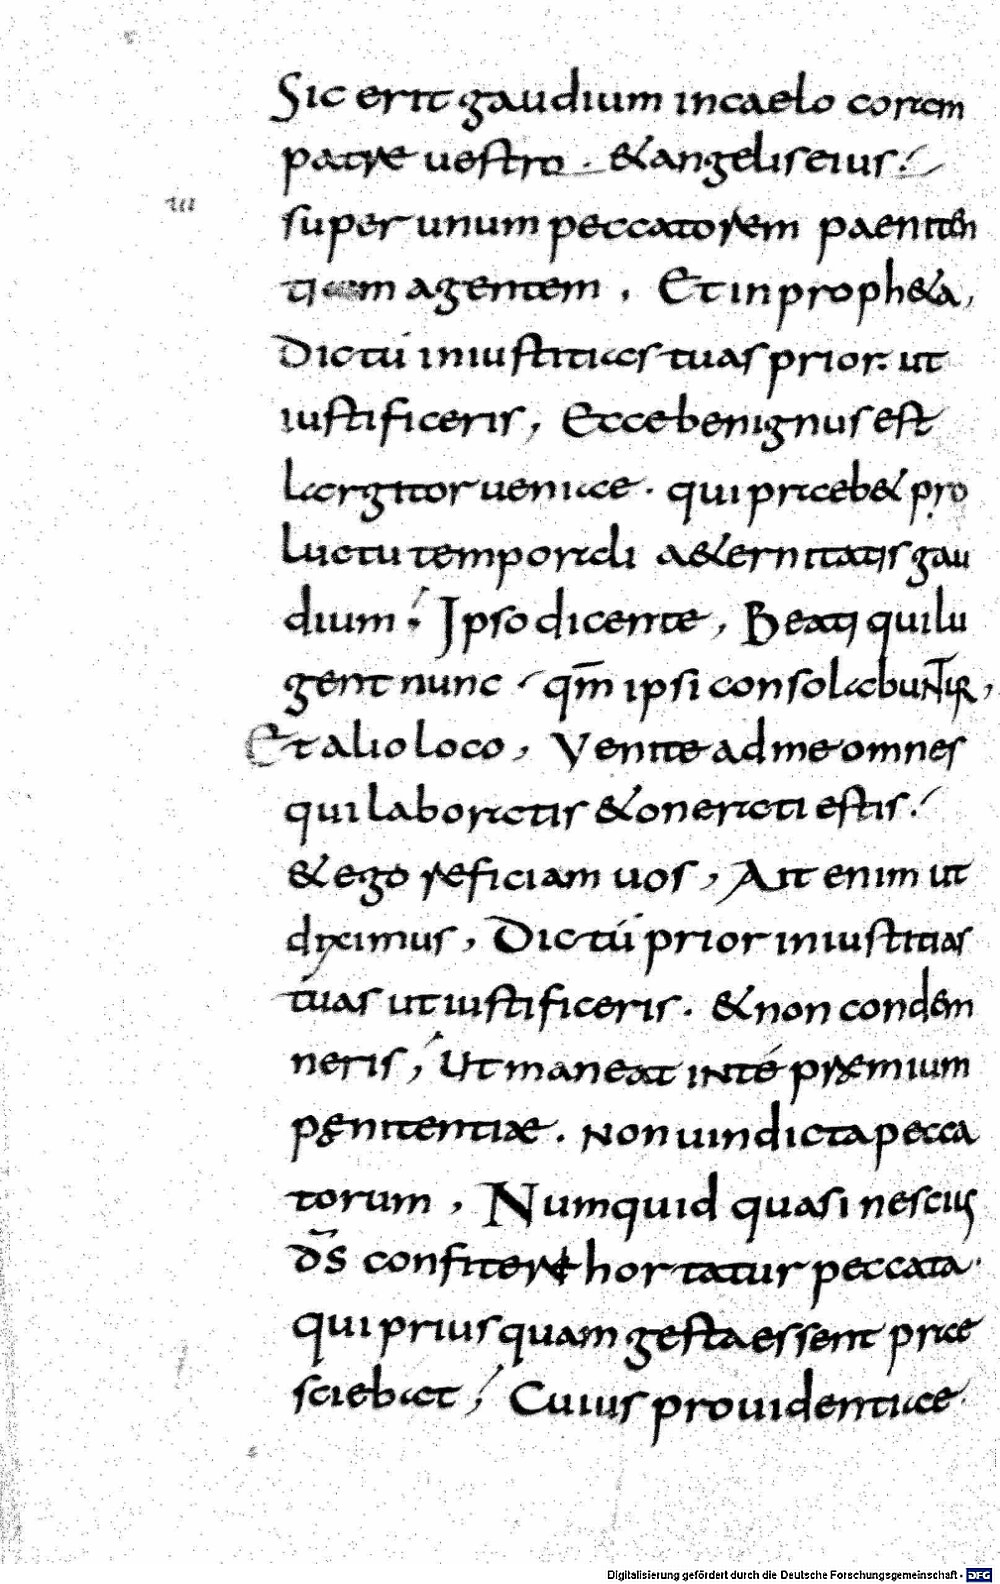 Sic erit gaudium in caelo coram
patre uestro . & angelis eius ./
iii
super unum peccatorem paeniten
tiam agentem , Et in proph&a,
Dic tú iniustitias tuas prior. ut
iustificeris , Ecce benignus est
largitor ueniae . qui praeb& pro
luctu temporali a&ernitatis gau
dium ./ Ipso dicente , Beati qui lu
gent nunc ./ qm̄ ipsi consolabuntur,
Et alio loco , Venite ad me omnes
qui laboratis & onerati estis ./
& ego reficiam uos , Ait enim ut
diximus , Dic tú prior iniustitias
tuas ut iustificeris . & non condem
neris ,/ Ut maneat in té praemium
pęnitentiae . Non uindicta pecca
torum , Numquid quasi nescius
d̄s confitere hortatur peccata.
qui priusquam gesta essent prae
sciebat ,/ Cuius prouidentiae
Digitalisierung gefördert durch die Deutsche Forschungsgemeinschaft - DFG